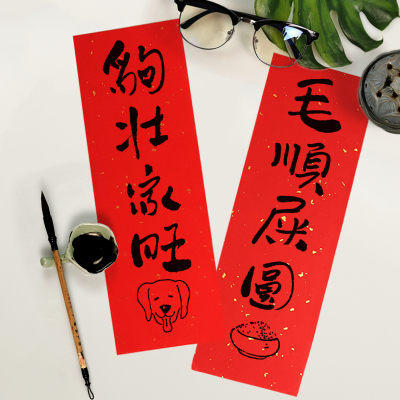 毛順屎圓
夠壯家旺